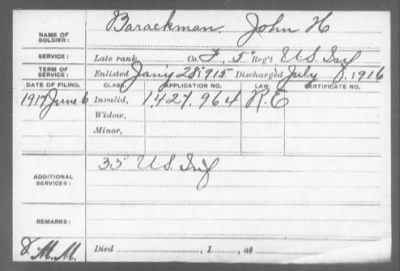 NAME OF SOLDIER: Barackman, John H
SERVICE: Late rank, Co. F, 5" Reg't U.S. Inf
TERM OF SERVICE: Enlisted Jan'y 28" 915 Discharged July 8, 1916
DATE OF FILING. CLASS. APPLICATION NO. LAW. CERTIFICATE NO.
1917 June 6 Invalid, 1.427.964 R.E
Widow,
Minor,
ADDITIONAL SERVICES: 33" U.S. Inf
REMARKS:
M.M. Died , 1 , at